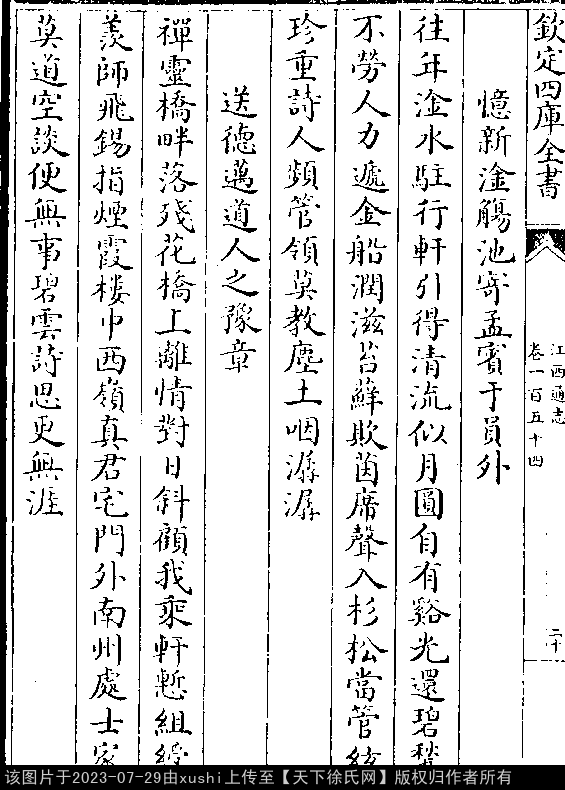 欽定四庫全書
江西通志
卷一百五十四
二十
憶新淦觴池寄孟賓于員外
往年淦水駐行軒引得清流似月圓自有谿光還碧甃
不勞人力遞金船潤滋苔蘚欺茵席聲入杉松當管絃
珍重詩人頻管領莫教塵土咽潺潺
送德邁道人之豫章
禪靈橋畔落殘花橋上離情對日斜顧我乘軒慙組綬
羨師飛錫指煙霞樓中西嶺真君宅門外南州處士家
莫道空談便無事碧雲詩思更無涯
该图片于2023-07-29由xushi上传至【天下徐氏网】版权归作者所有